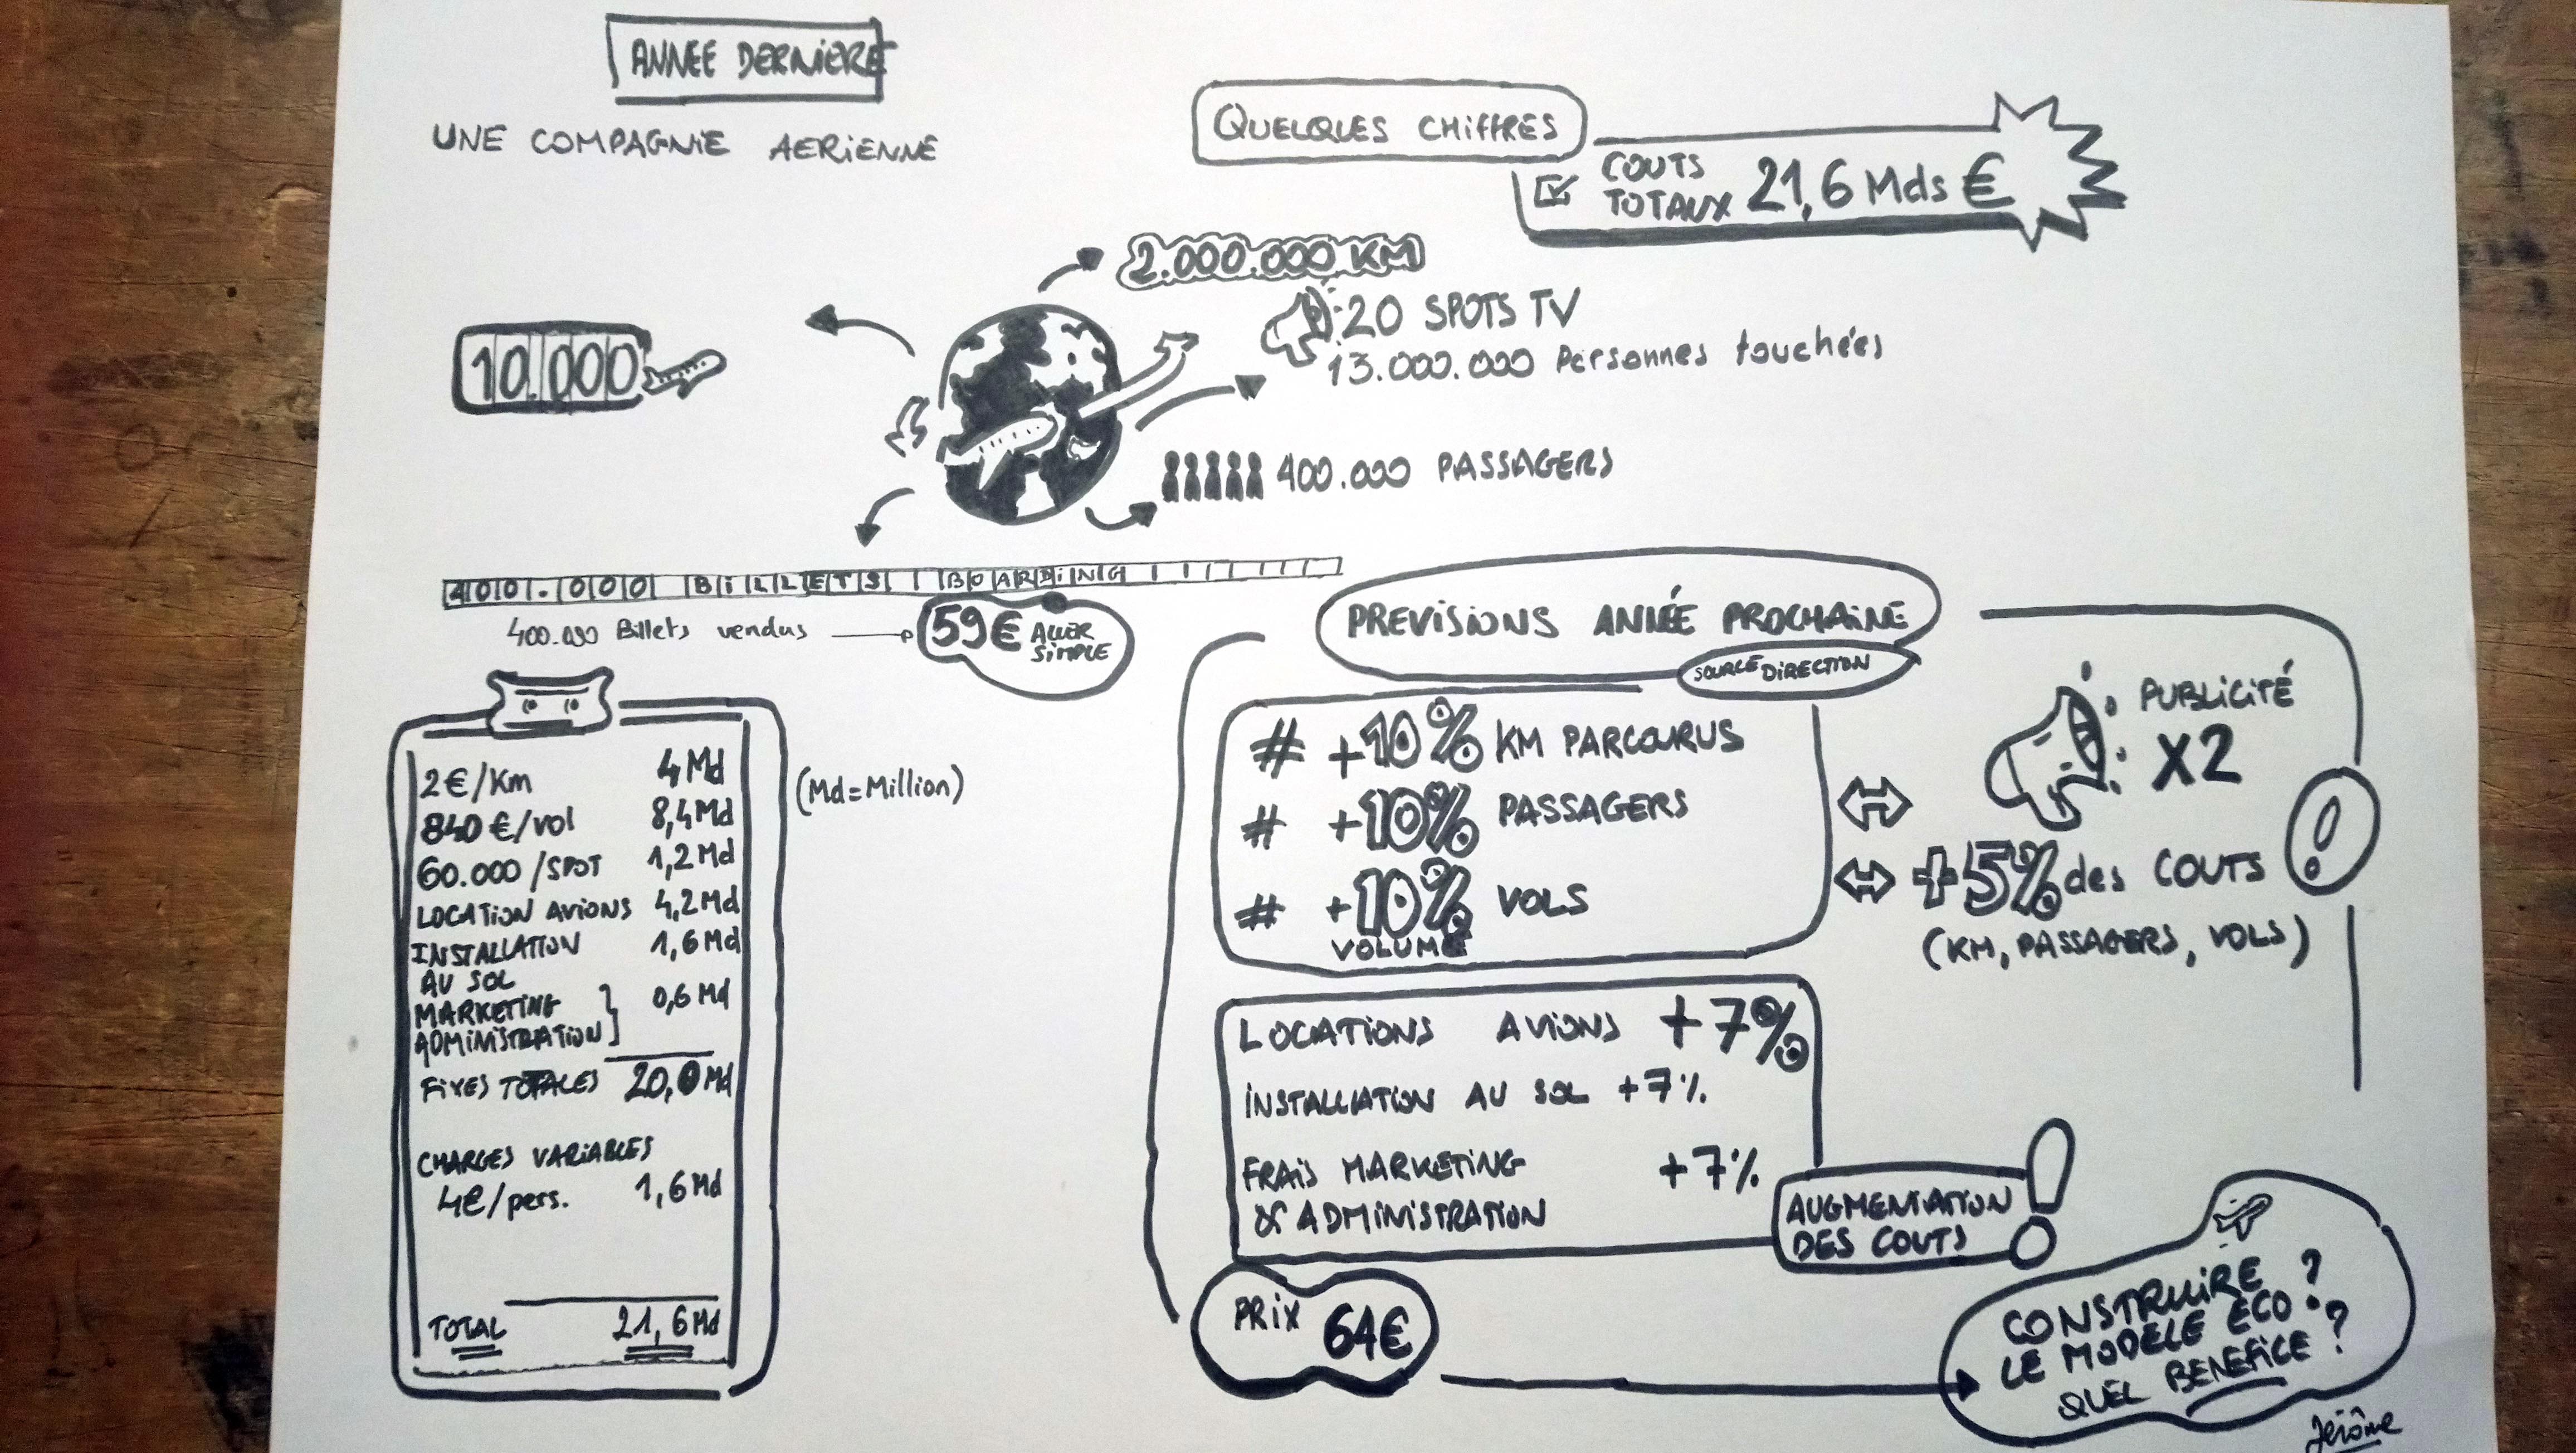 ANNEE DERNIERE
UNE COMPAGNIE AERIENNE
QUELQUES CHIFFRES
COUTS TOTAUX 21,6 Mds €
2.000.000 KM
20 SPOTS TV
13.000.000 Personnes touchées
10.000
400.000 PASSAGERS
400.000 BILLETS BOARDING
400.000 Billets vendus
59€ ALLER SIMPLE
2€/Km 4Md
840€/vol 8,4Md
60.000/SPOT 1,2Md
LOCATION AVIONS 4,2Md
INSTALLATION 1,6Md
AU SOL
MARKETING 0,6 Md
ADMINISTRATION
FIXES TOTALES 20,0Md
CHARGES VARIABLES
4€/pers. 1,6Md
TOTAL 21,6Md
(Md=Million)
PREVISIONS ANNÉE PROCHAINE
SOURCE DIRECTION
# +10% KM PARCOURUS
# +10% PASSAGERS
# +10% VOLS
VOLUME
PUBLICITÉ
X2
+5% des COUTS
(KM, PASSAGERS, VOLS)
LOCATIONS AVIONS +7%
INSTALLIATION AU SOL +7%
FRAIS MARKETING +7%
& ADMINISTRATION
AUGMENTATION
DES COUTS !
PRIX 64€
CONSTRUIRE
LE MODELE ECO ?
QUEL BENEFICE ?
Jérôme